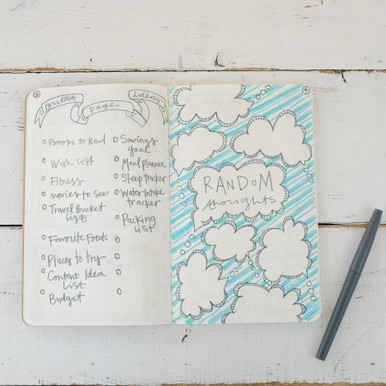 bullet page ideas
Books to Read
Wish List
Fitness
movies to see
Travel Bucket
list
Favorite Foods
Places to try
Content Idea
List
Budget
Savings
goal
Meal Planner
Sleep tracker
Water Intake
tracker
Packing
list
RANDOM
thoughts